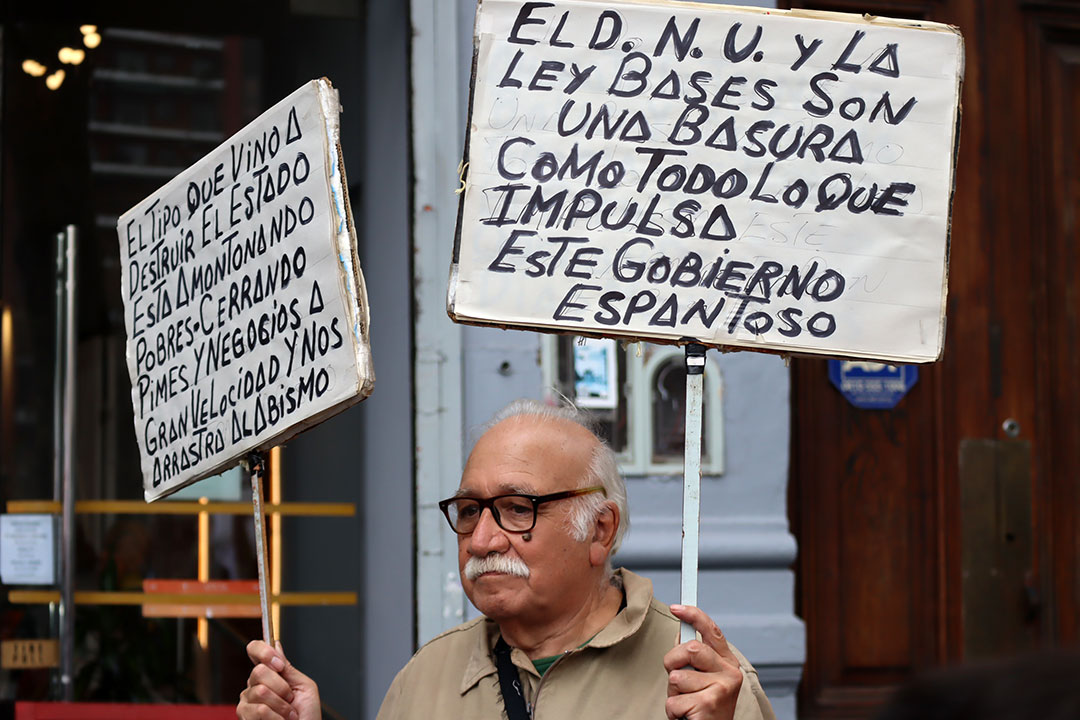 EL TIPO QUE VINO A
DESTRUIR EL ESTADO
ESTA AMONTONANDO
POBRES-CERRANDO
PIMES Y NEGOCIOS A
GRAN VELOCIDAD Y NOS
ARRASTRA AL ABISMO
EL D. N. U. Y LA
LEY BASES SON
UNA BASURA
COMO TODO LO QUE
IMPULSA
ESTE GOBIERNO
ESPANTOSO
ADT